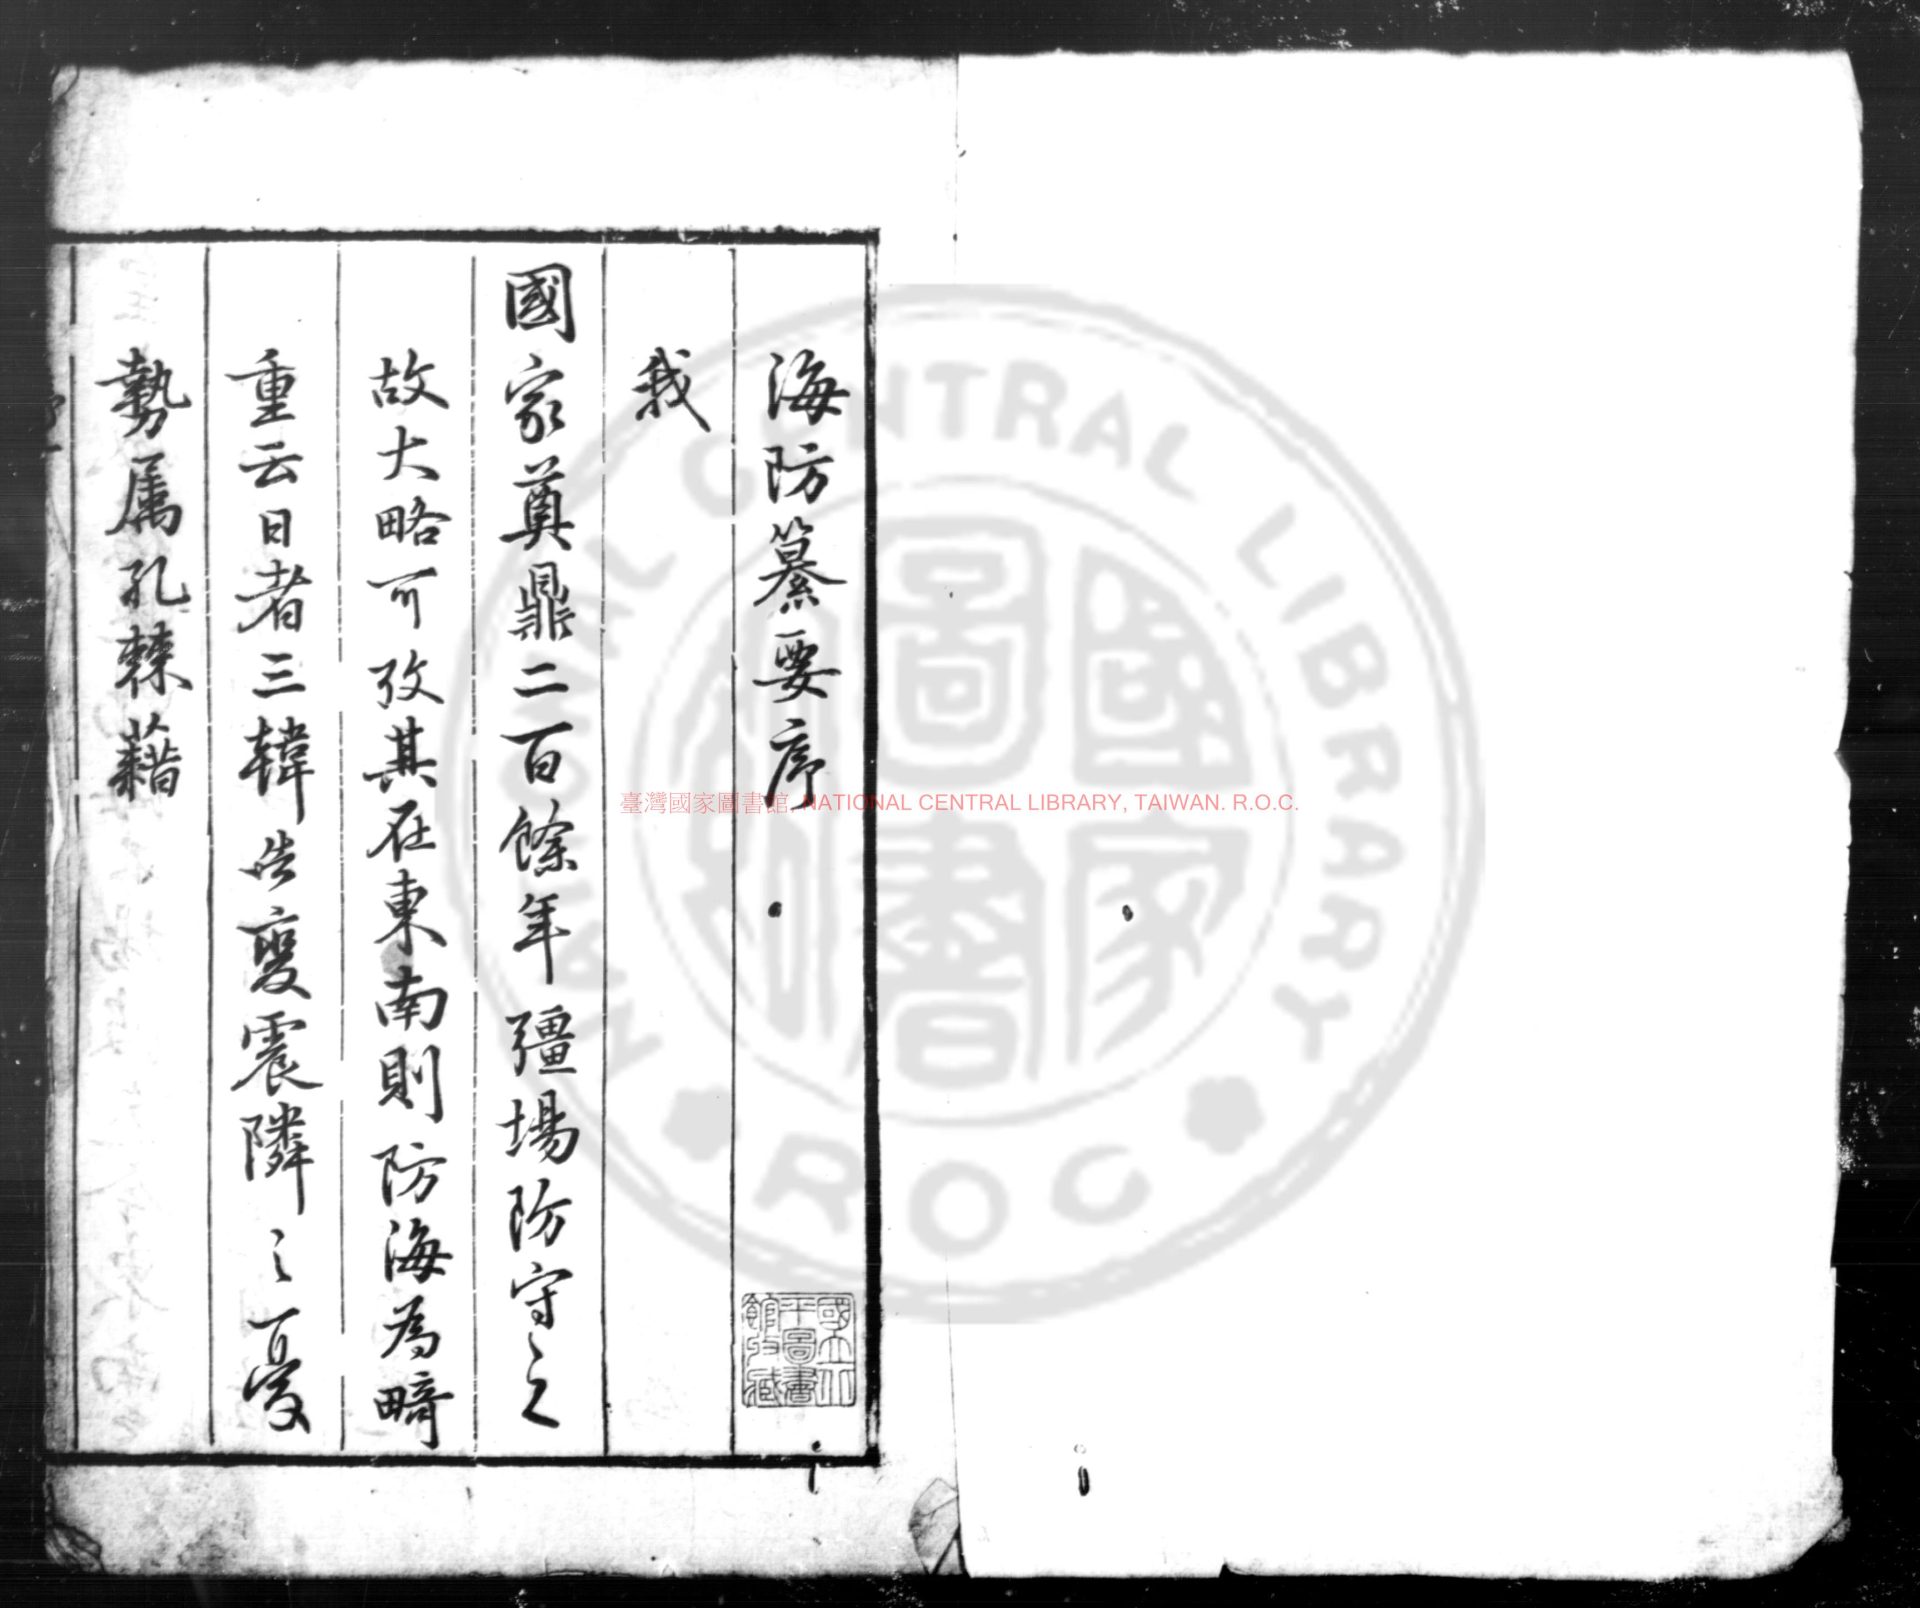 海防纂要序
我
國家奠鼎二百餘年疆場防守之
故大略可攷其在東南則防海為畸
重云日者三韓告變震隣之憂
勢屬孔棘藉
國立北
平圖書
館收藏
臺灣國家圖書館, NATIONAL CENTRAL LIBRARY, TAIWAN. R.O.C.
NATIONAL CENTRAL LIBRARY
R O C
國家
圖書